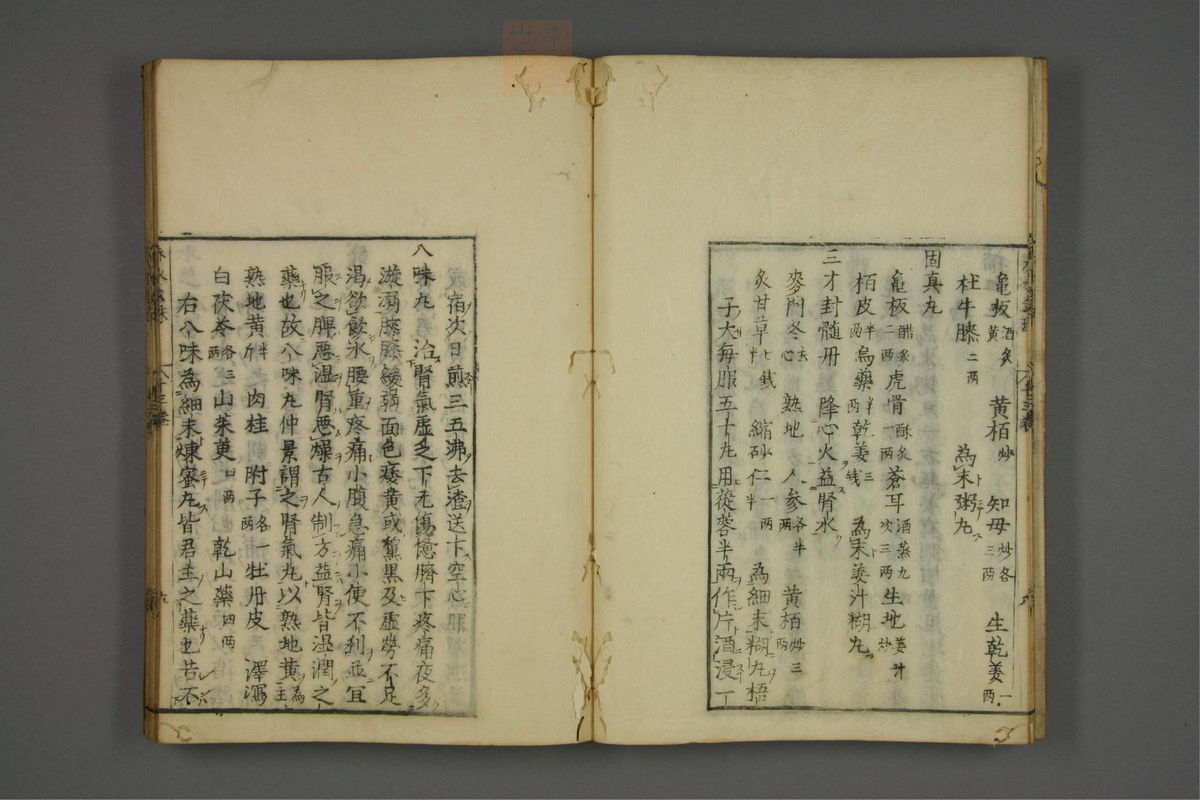 亀板酒炙黄 黄栢炒 知母炒各三两 生乾姜一两
杜牛膝二两 為末粥丸
固真丸
亀板醋炙二两 虎骨酥炙一两 蒼耳酒蒸九次三两 生地姜汁炒
栢皮半两 烏藥半两 乾姜三钱 為末姜汁糊丸
三才封髓丹 降心火益腎水
麥門冬去心 熟地 人参各半两 黄栢炒三两
炙甘草七钱半 縮砂仁一两半 為細末糊丸梧
子大每服五十丸用蓯蓉半兩作片酒浸一
宿次日煎三五沸去渣送下空心服
八味丸 治腎氣虚乏下元傷憊臍下疼痛夜多
漩溺膝緩弱面色痿黄或黧黒及虚勞不足
渴欲飲水腰重疼痛小腹急痛小便不利並宜
服之脾悪湿腎悪燥古人制方益腎皆湿潤之
藥也故八味丸仲景謂之腎氣丸以熟地黄為主
熟地黄半斤 肉桂 附子各一两 牡丹皮 澤瀉
白茯苓各三两 山茱萸四两 乾山藥四两
右八味為細末煉蜜丸皆君主之藥也若不